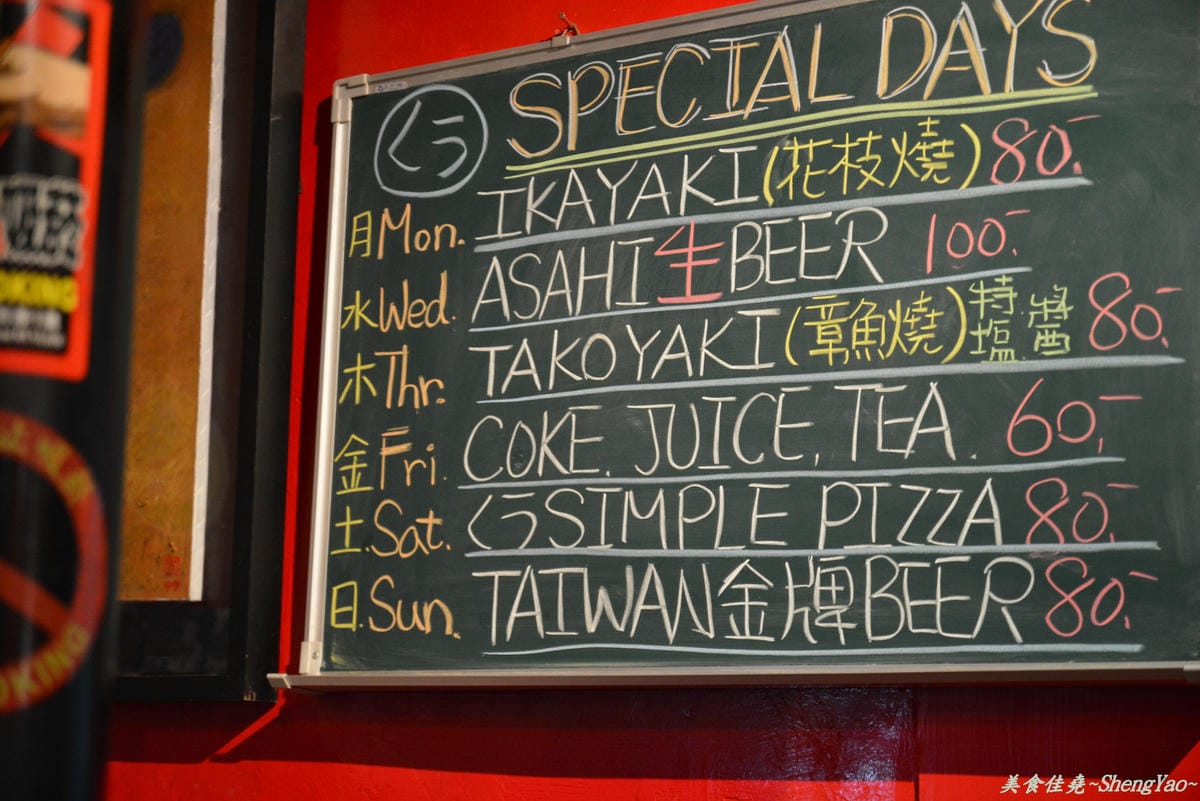 くラ SPECIAL DAYS
月 Mon. IKAYAKI (花枝燒) 80.-
水 Wed. ASAHI 生 BEER 100.-
木 Thr. TAKOYAKI (章魚燒) 特塩.醬 80.-
金 Fri. COKE. JUICE. TEA. 60.-
土. Sat. くラSIMPLE PIZZA 80.-
日. Sun. TAIWAN金牌BEER 80.-
OKING
OKING
美食佳堯~ShengYao~